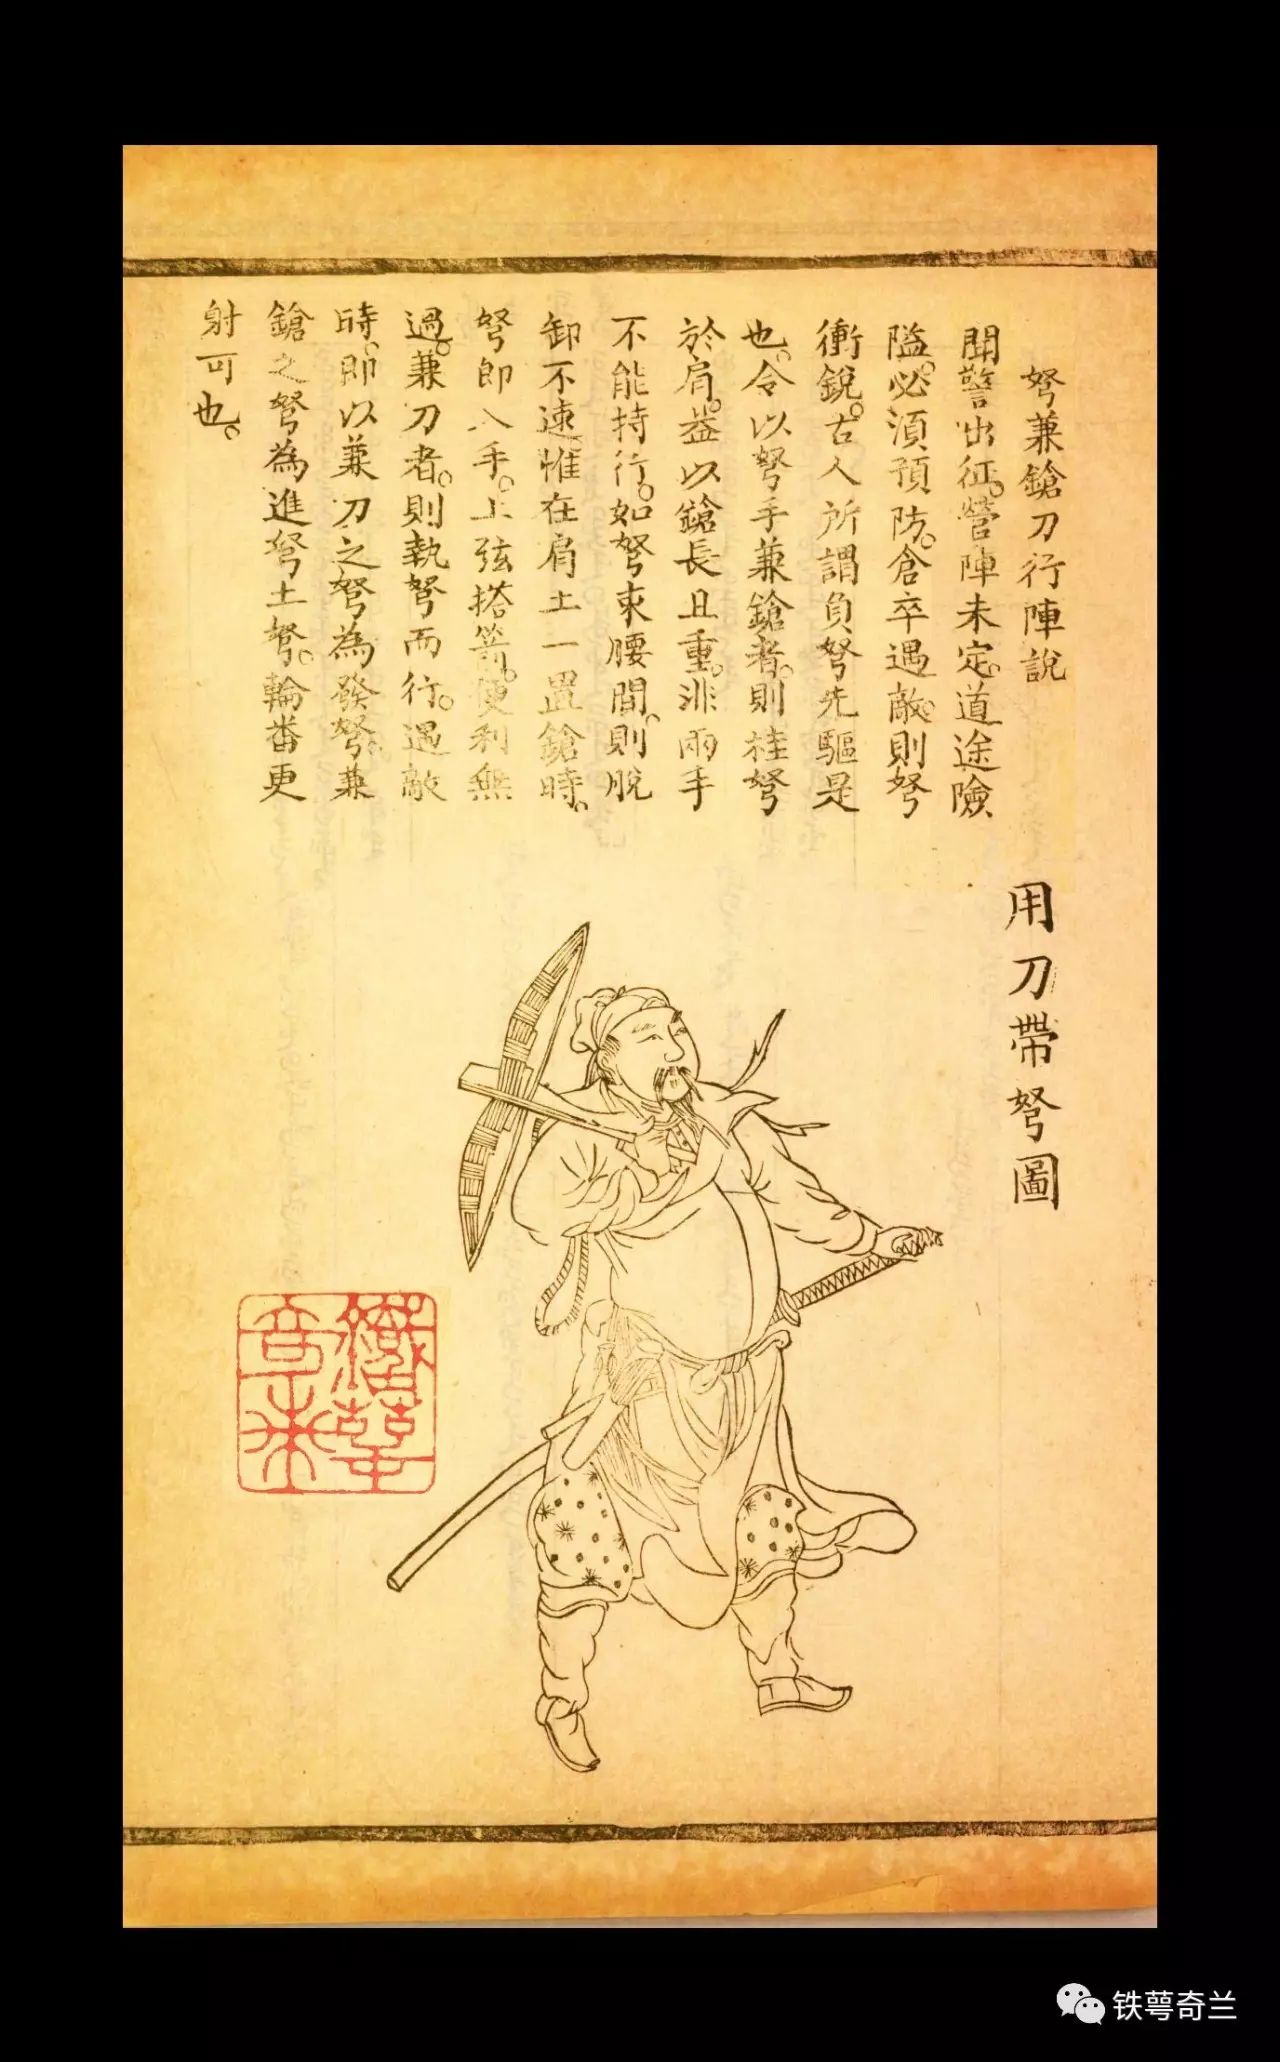 弩兼鎗刀行陣說
聞警出征。營陣未定。道途險
隘。必須預防。倉卒遇敵。則弩
衝銳。古人所謂負弩先驅是
也。令以弩手兼鎗者。則挂弩
於肩。蓋以鎗長且重。非兩手
不能持行。如弩束腰間。則脫
卸不速惟在肩上一置鎗時。
弩即入手。上弦搭箭。便利無
過。兼刀者。則執弩而行。遇敵
時。即以兼刀之弩為發弩。兼
鎗之弩為進弩上弩。輪番更
射可也。
用刀帶弩圖
铁萼奇兰